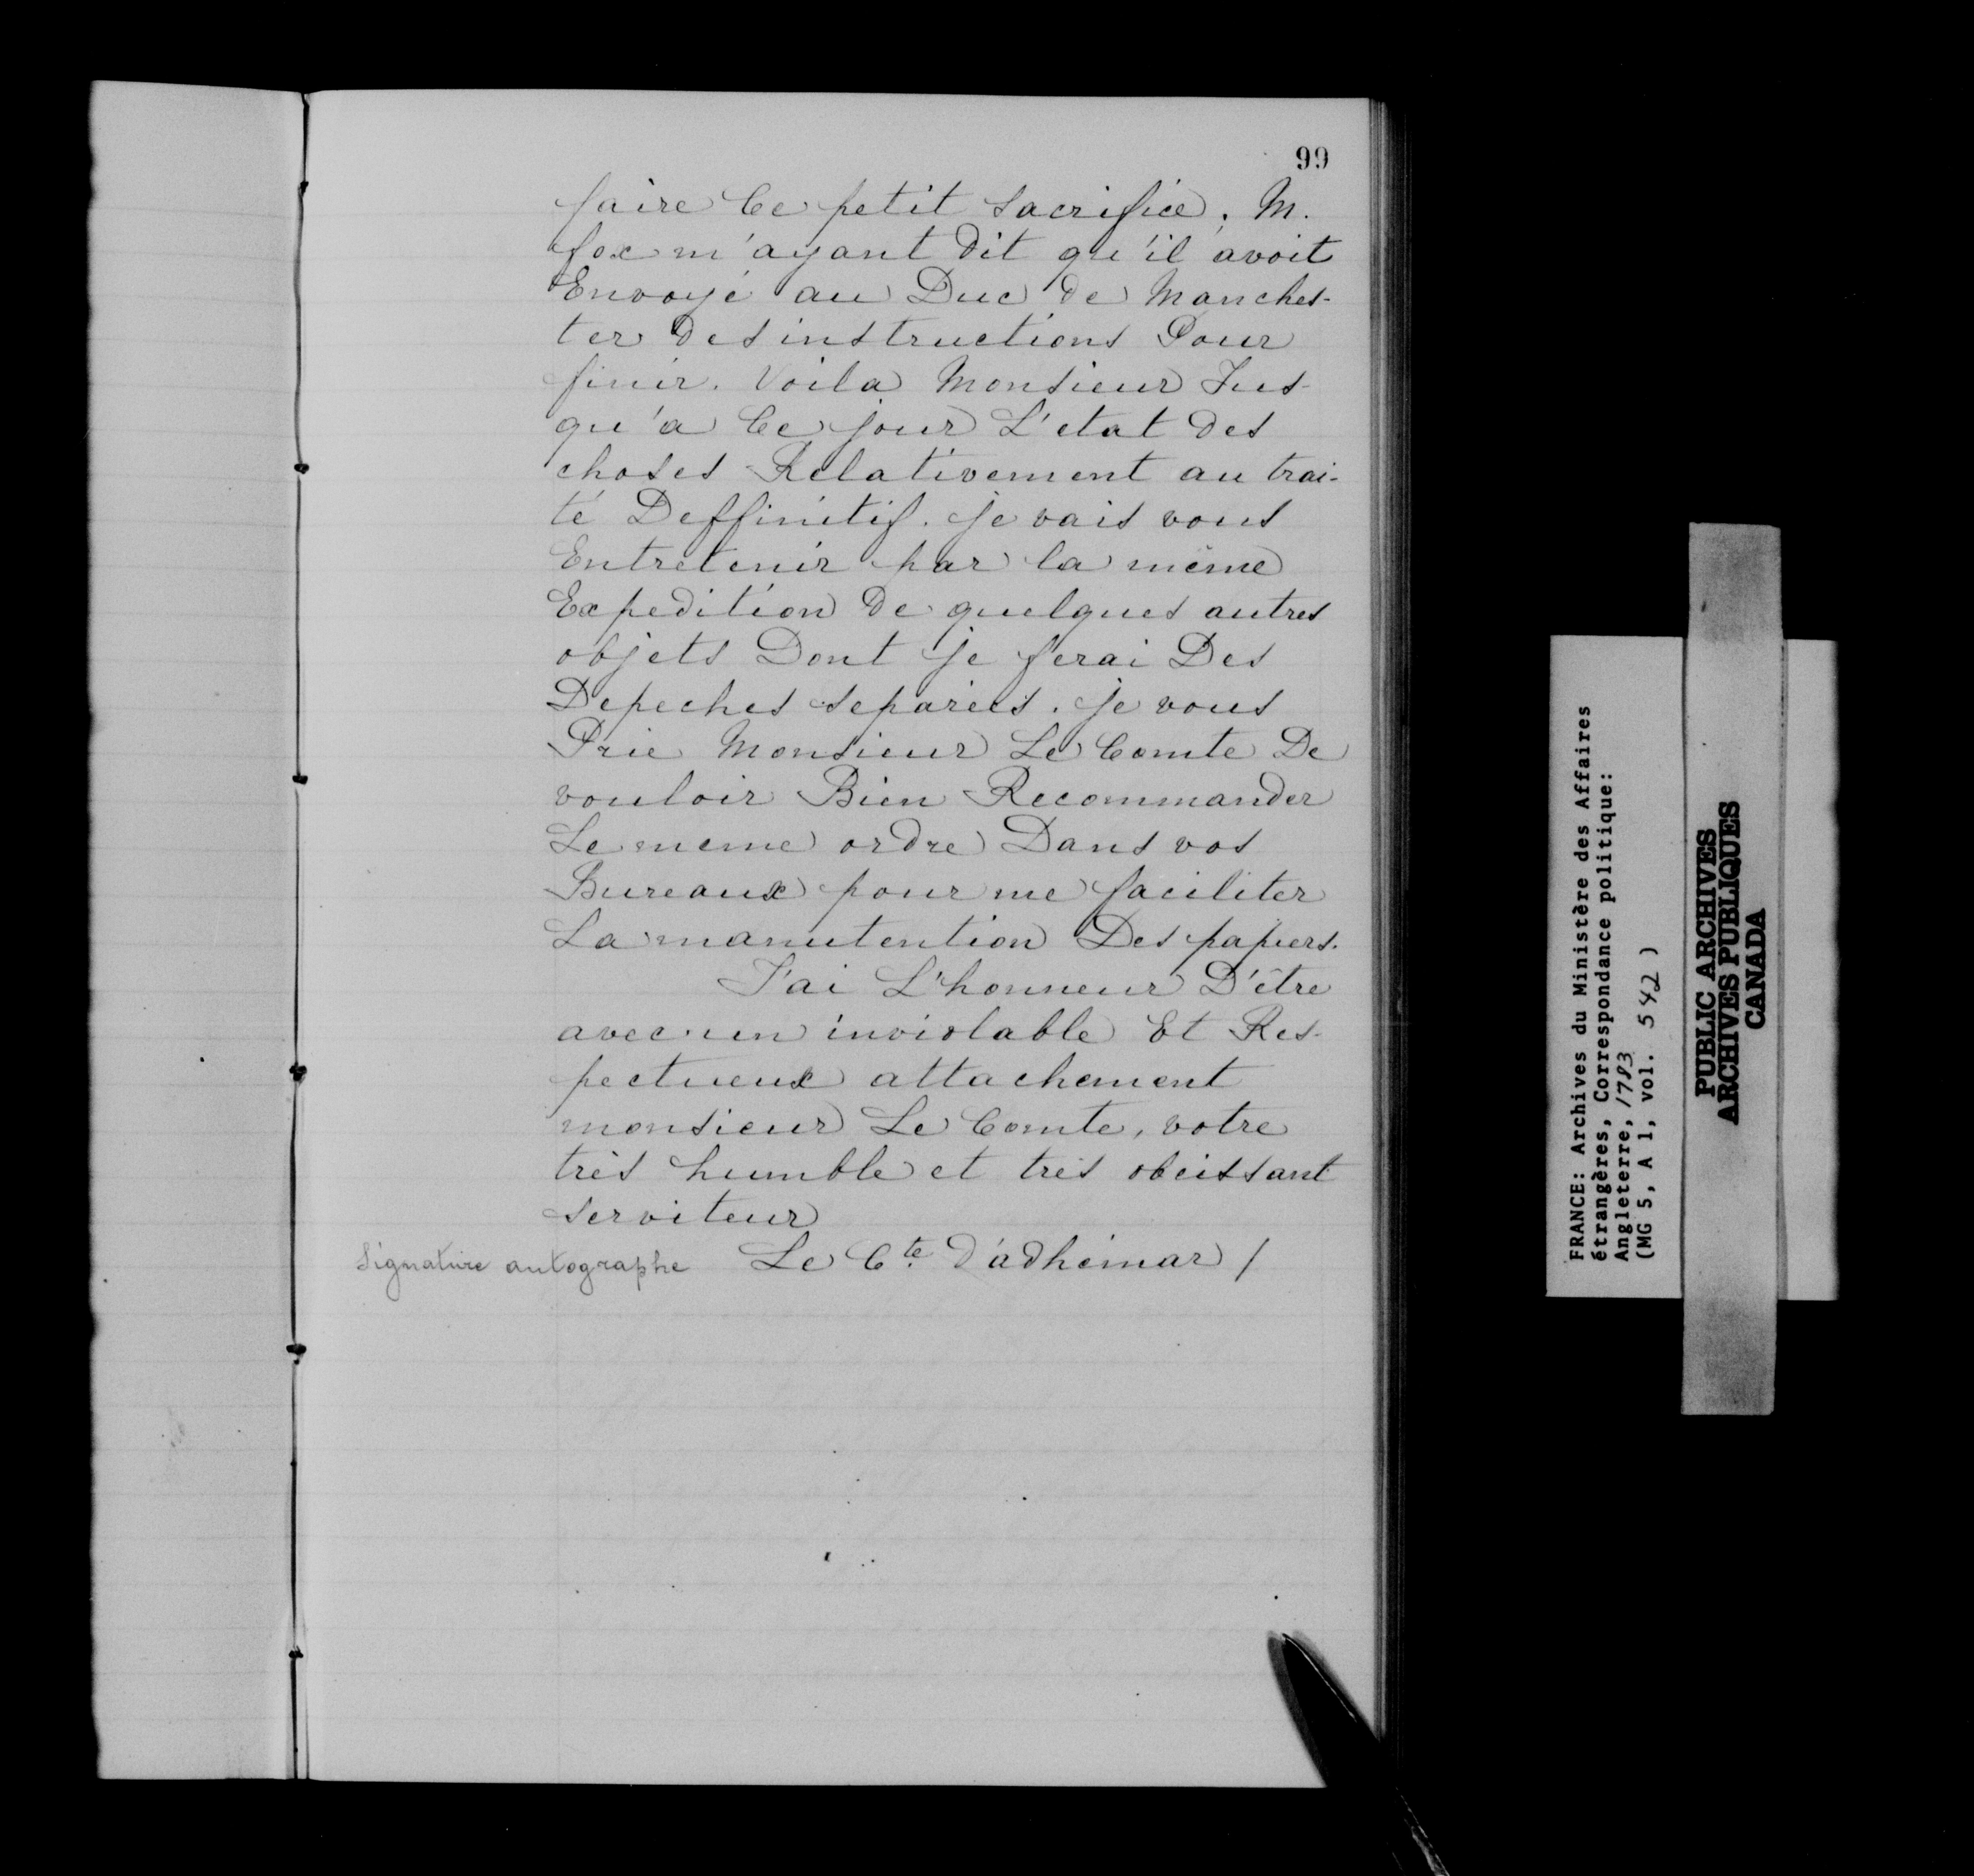 99
faire Ce petit sacrifice, M.
fox m'ayant Dit qu'il avoit
Envoyé au Duc de Manches-
ter Des instructions Pour
finir. Voila Monsieur Jus-
qu'a Ce jour L'etat Des
choses Relativement au trai-
té Deffinitif. je vais vous
Entretenir par la même
Expedition De quelques autres
objets Dont je ferai Des
Depeches separées. je vous
Prie Monsieur Le Comte De
vouloir Bien Recommander
Le meme ordre Dans vos
Bureaux pour me faciliter
La manutention Des papiers.
J'ai L'honneur D'être
avec un inviolable Et Res-
pectueux attachement
monsieur Le Comte, votre
très humble et très obeissant
serviteur
Signature autographe Le Cte. D'adhémar /
FRANCE: Archives du Ministère des Affaires
étrangères, Correspondance politique:
Angleterre, 1783
(MG 5, A 1, vol. 542 )
PUBLIC ARCHIVES
ARCHIVES PUBLIQUES
CANADA